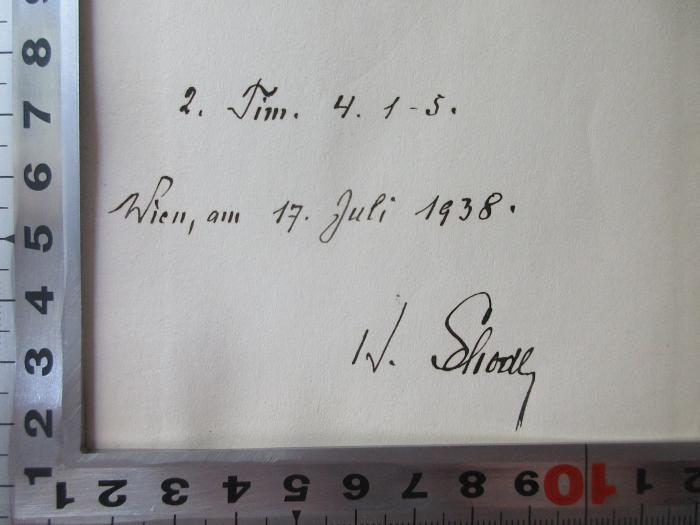 2. Tim. 4. 1-5.
Wien, am 17. Juli 1938.
9
8
7
6
5
4
3
2
1
1 2 3 4 5 6 7 8 9 10 1